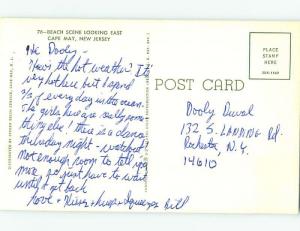 76—BEACH SCENE LOOKING EAST
CAPE MAY, NEW JERSEY
PLACE
STAMP
HERE
POST CARD
Hi Dooly-
How's the hot weather? It's
very hot here but I spend
3/4 of every day in the ocean.
The girls here are really some-
thing else! there is a dance
thursday night - watched
not enough room to tell you
more so just have to wait
until I get back
Love + Kisses + hugs + squeezes Bill
Dooly Duval
132 S. LANDING Rd.
Rochester, N.Y.
14610